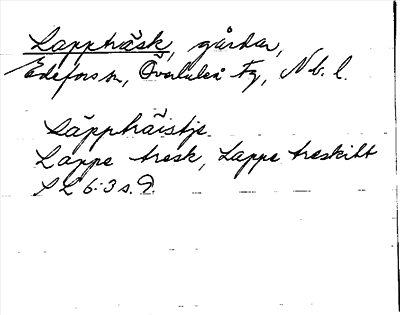 Lappträsk, gårdar,
Edefors sn, Överluleå Fg, Nb. l.
Läppträistje.
Lappe tresk, Lappe treskilt
S L 6:3 s. 9.